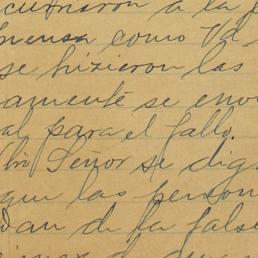 cutriaron a la
inensa como Va
se hizieron las
amente se env
al para el fallo.
Señor se dig
que las person
Dan de la false